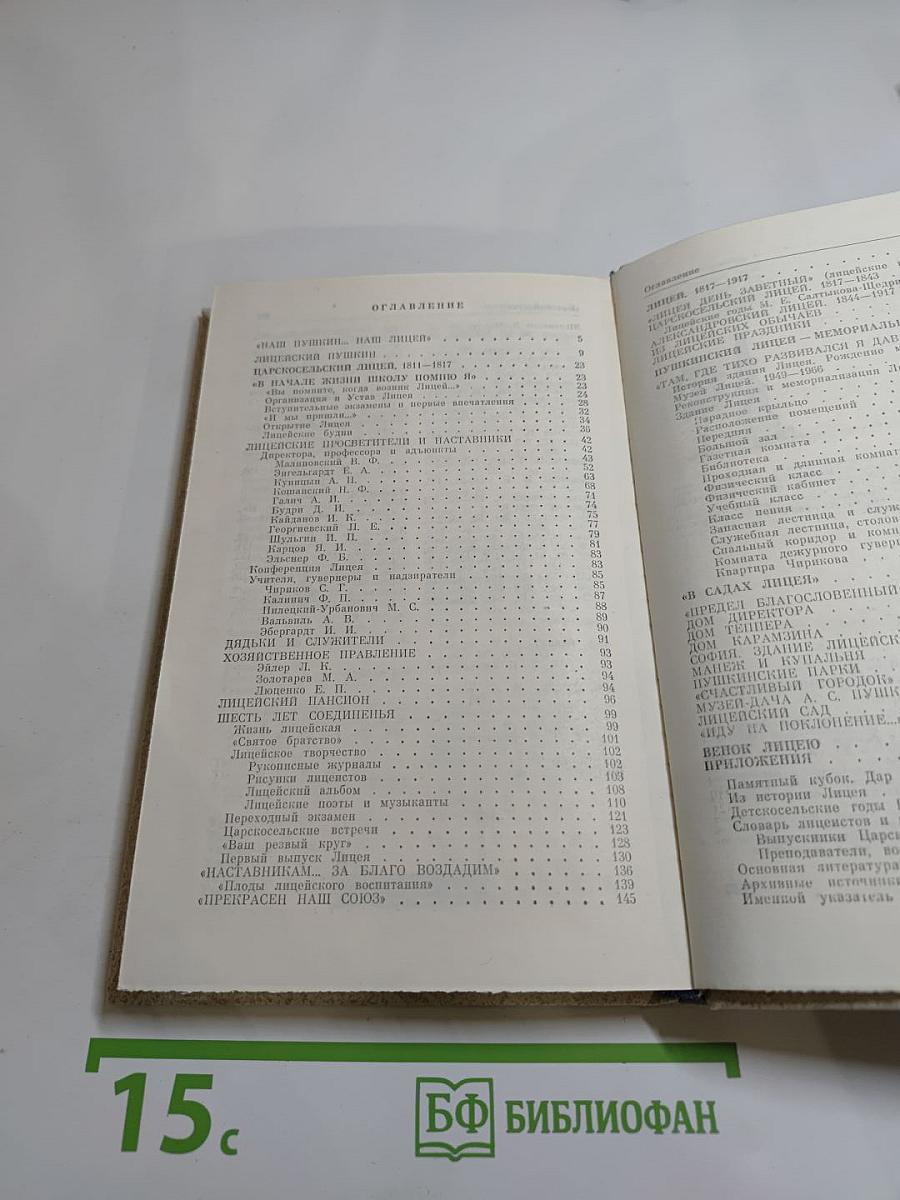 ОГЛАВЛЕНИЕ
«НАШ ПУШКИН... НАШ ЛИЦЕЙ» 5
ЛИЦЕЙСКИЙ ПУШКИН 9
ЦАРСКОСЕЛЬСКИЙ ЛИЦЕЙ, 1811—1817 23
«В НАЧАЛЕ ЖИЗНИ ШКОЛУ ПОМНЮ Я» 23
«Вы помните, когда возник Лицей...» 23
Организация и Устав Лицея 24
Вступительные экзамены и первые впечатления 28
«И мы пришли...» 32
Открытие Лицея 34
Лицейские будни 36
ЛИЦЕЙСКИЕ ПРОСВЕТИТЕЛИ И НАСТАВНИКИ 42
Директора, профессора и адъюнкты 42
Малиновский В. Ф. 43
Энгельгардт Е. А. 52
Куницын А. П. 63
Кошанский Н. Ф. 68
Галич А. И. 71
Будри Д. И. 74
Кайданов И. К. 75
Георгиевский П. Е. 77
Шульгин И. П. 79
Карцов Я. И. 81
Эльснер Ф. Б. 83
Конференция Лицея 83
Учителя, гувернеры и надзиратели 85
Чириков С. Г. 85
Калинич Ф. П. 87
Пилецкий-Урбанович М. С. 88
Вальвиль А. В. 89
Эбергардт И. И. 90
ДЯДЬКИ И СЛУЖИТЕЛИ 91
ХОЗЯЙСТВЕННОЕ ПРАВЛЕНИЕ 93
Эйлер Л. К. 93
Золотарев М. А. 94
Люценко Е. П. 94
ЛИЦЕЙСКИЙ ПАНСИОН 96
ШЕСТЬ ЛЕТ СОЕДИНЕНЬЯ 99
Жизнь лицейская 99
«Святое братство» 101
Лицейское творчество 102
Рукописные журналы 102
Рисунки лицеистов 103
Лицейский альбом 108
Лицейские поэты и музыканты 110
Переходный экзамен 121
Царскосельские встречи 123
«Ваш резвый круг» 128
Первый выпуск Лицея 130
«НАСТАВНИКАМ... ЗА БЛАГО ВОЗДАДИМ» 136
«Плоды лицейского воспитания» 139
«ПРЕКРАСЕН НАШ СОЮЗ» 145
Оглавление
ЛИЦЕЙ. 1817—1917
«ЛИЦЕЯ ДЕНЬ ЗАВЕТНЫЙ» (лицейские
ЦАРСКОСЕЛЬСКИЙ ЛИЦЕЙ. 1817—1843
Лицейские годы М. Е. Салтыкова-Щедри
АЛЕКСАНДРОВСКИЙ ЛИЦЕЙ. 1844—1917
ИЗ ЛИЦЕЙСКИХ ОБЫЧАЕВ
ЛИЦЕЙСКИЕ ПРАЗДНИКИ
ПУШКИНСКИЙ ЛИЦЕЙ — МЕМОРИАЛЬН
«ТАМ, ГДЕ ТИХО РАЗВИВАЛСЯ Я ДАВ
История здания Лицея. Рождение м
Музей Лицей. 1949—1966
Реконструкция и мемориализация Л
Здание Лицея
Парадное крыльцо
Расположение помещений
Передняя
Большой зал
Газетная комната
Библиотека
Проходная и длинная комнат
Физический класс
Физический кабинет
Учебный класс
Класс пения
Запасная лестница и служ
Служебная лестница, столов
Спальный коридор и комн
Комната дежурного гувер
Квартира Чирикова
«В САДАХ ЛИЦЕЯ»
«ПРЕДЕЛ БЛАГОСЛОВЕННЫЙ
ДОМ ДИРЕКТОРА
ДОМ ТЕППЕРА
ДОМ КАРАМЗИНА
СОФИЯ. ЗДАНИЕ ЛИЦЕЙСК
МАНЕЖ И КУПАЛЬНЯ
ПУШКИНСКИЕ ПАРКИ
«СЧАСТЛИВЫЙ ГОРОДОК»
МУЗЕЙ-ДАЧА А. С. ПУШК
ЛИЦЕЙСКИЙ САД
«ИДУ НА ПОКЛОНЕНИЕ...
ВЕНОК ЛИЦЕЮ
ПРИЛОЖЕНИЯ
Памятный кубок. Дар
Из истории Лицея
Детскосельские годы
Словарь лицеистов и
Выпускники Царс
Преподаватели, во
Основная литература
Архивные источники
Именной указатель
15 с
БФ БИБЛИОФАН